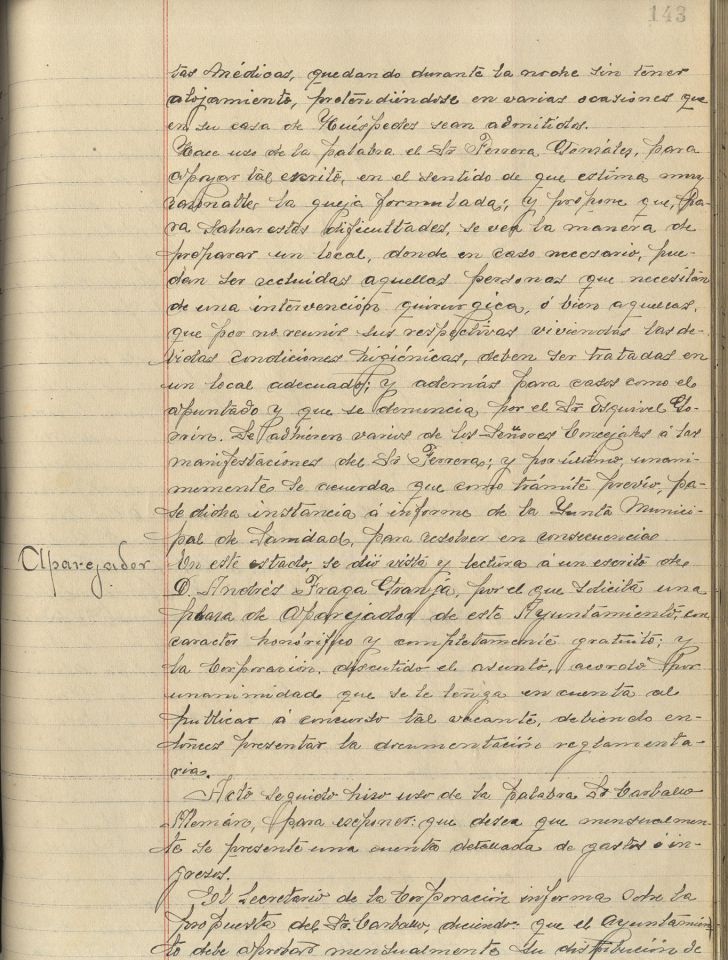 143
tas médicas, quedando durante la noche sin tener
alojamiento, pretendiéndose en varias ocasiones que
en su casa de Huéspedes sean admitidos.
Hace uso de la palabra el Sr Ferrera González, para
apoyar tal escrito, en el sentido de que estima muy
razonable la queja formulada; y propone que, pa-
ra salvar estas dificultades, se vea la manera de
preparar un local, donde en caso necesario, pue-
dan ser recluidas aquellas personas que necesitan
de una intervención quirurgica, ó bien aquellas,
que por no reunir sus respectivas viviendas las de-
bidas condiciones higiénicas, deben ser tratadas en
un local adecuado; y además para casos como el
apuntado y que se denuncia por el Sr Esquivel Do-
min. Se adhieren varios de los Señores Concejales á las
manifestaciones del Sr Ferrera; y por último, unani-
memente se acuerda que como trámite previo, pa-
se dicha instancia á informe de la Junta Munici-
pal de Sanidad, para resolver en consecuencia
Aparejador
En este estado, se dió vista y lectura á un escrito de
D. Andrés Fraga Granja, por el que solicita una
plaza de Aparejador de este Ayuntamiento, con
caracter honorífico y completamente gratuito; y
la Corporación, discutido el asunto, acordó por
unanimidad que se le tenga en cuenta al
publicar á concurso tal vacante, debiendo en-
tonces presentar la documentación reglamenta-
ria.
Acto seguido hizo uso de la palabra Sr Carballo
Alemán, para exponer: que desea que mensualmen-
te se presente una cuenta detallada de gastos é in-
gresos.
El Secretario de la Corporación informa sobre la
propuesta del Sr Carballo, diciendo: que el Ayuntamien-
to debe aprobar mensualmente su distribución de